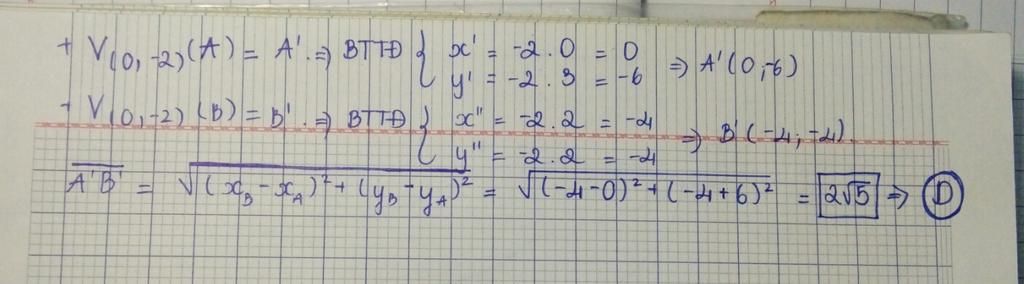 + V(0,-2)(A) = A' . => BTTĐ { x' = -2.0 = 0
y' = -2.3 = -6 => A'(0,-6)
+ V(0,-2)(B) = B' . => BTTĐ { x" = -2.2 = -4
y" = -2.2 = -4 => B'(-4;-4)
A'B' = √(x_B - x_A)² + (y_B - y_A)² = √(-4-0)² + (-4+6)² = 2√5 => D